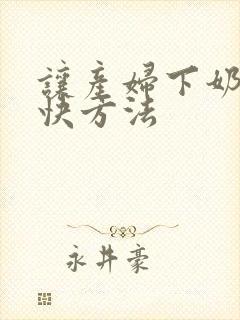 讓產婦下奶
快方法
永井豪